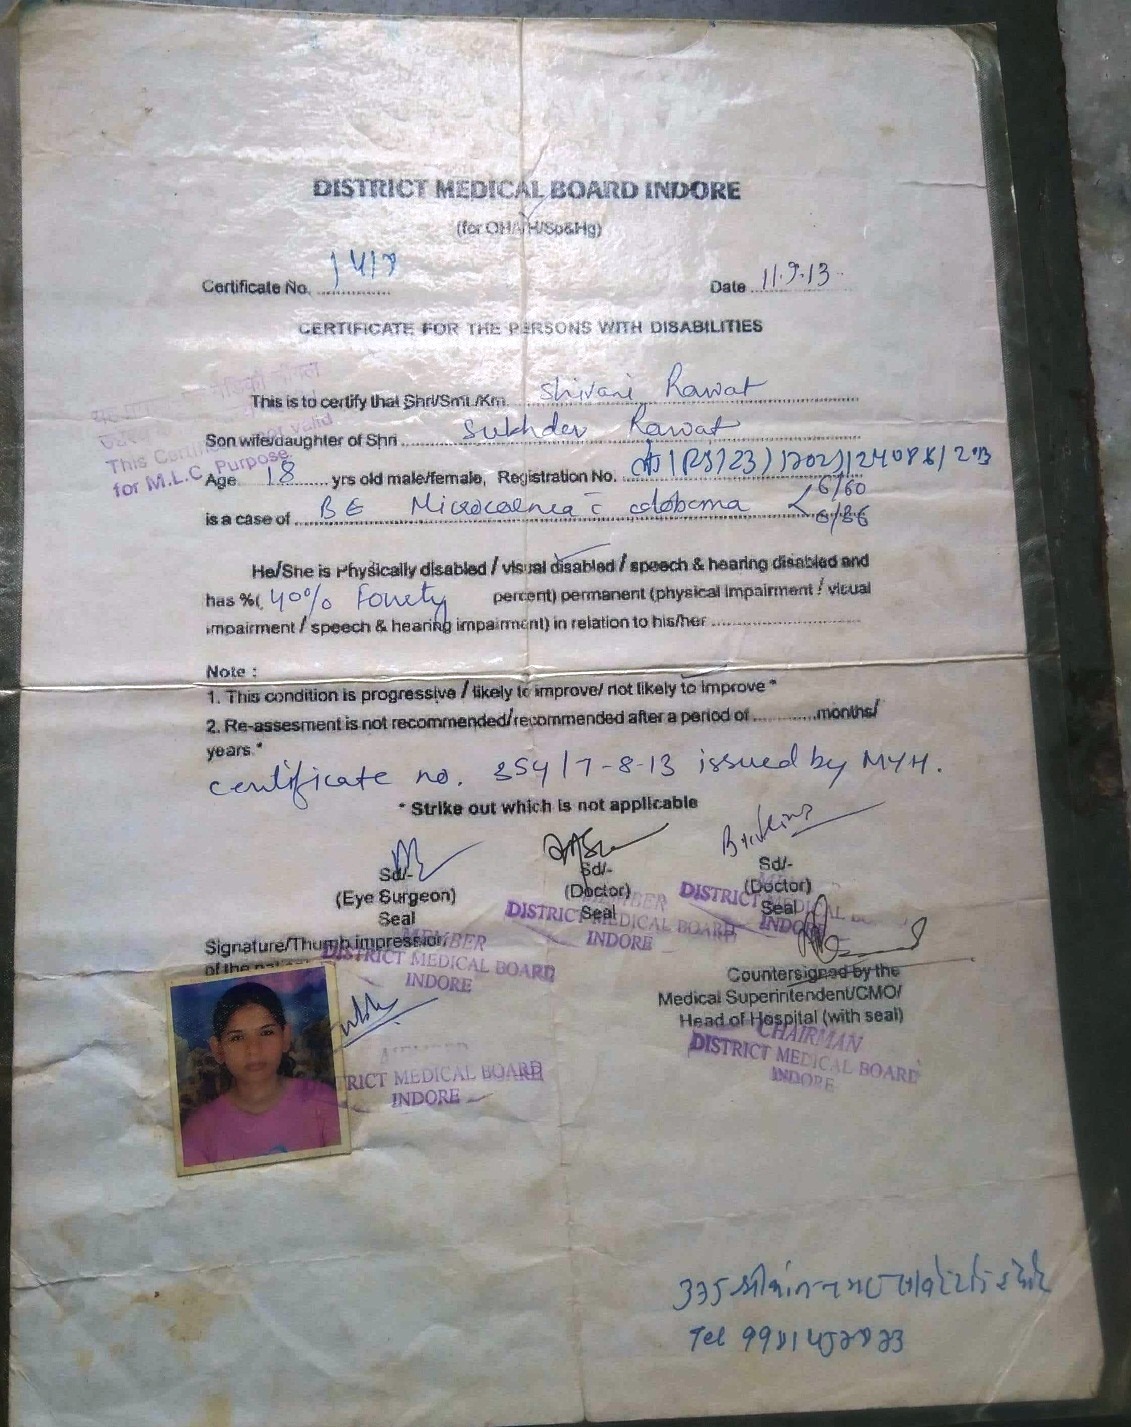 DISTRICT MEDICAL BOARD INDORE
(for OH/VH/Sp&Hg)
Certificate No.
Date 11.9.13
CERTIFICATE FOR THE PERSONS WITH DISABILITIES
This is to certify that Shri/Smt./Km. Shivani Rawat
Son wife/daughter of Shri Sukhdev Rawat
This Certificate not valid
for M.L.C. Purpose
Age 18 yrs old male/female, Registration No.
is a case of BE Microcornea c̄ coloboma < 6/60
6/36
He/She is Physically disabled / visual disabled / speech & hearing disabled and
has %( 40% Fourty percent) permanent (physical impairment / visual
impairment / speech & hearing impairment) in relation to his/her
Note :
1. This condition is progressive / likely to improve/ not likely to improve *
2. Re-assesment is not recommended/recommended after a period of ............months/
years.*
certificate no. 354/7-8-13 issued by MYH.
* Strike out which is not applicable
Sd/- Sd/- Sd/-
(Eye Surgeon) (Doctor) (Doctor)
Seal Seal Seal
MEMBER
DISTRICT MEDICAL BOARD
INDORE
MEMBER
DISTRICT MEDICAL BOARD
INDORE
Signature/Thumb impression
of the
MEMBER
DISTRICT MEDICAL BOARD
INDORE
Countersigned by the
Medical Superintendent/CMO/
Head of Hospital (with seal)
CHAIRMAN
DISTRICT MEDICAL BOARD
INDORE
MEMBER
TRICT MEDICAL BOARD
INDORE
335
Tel